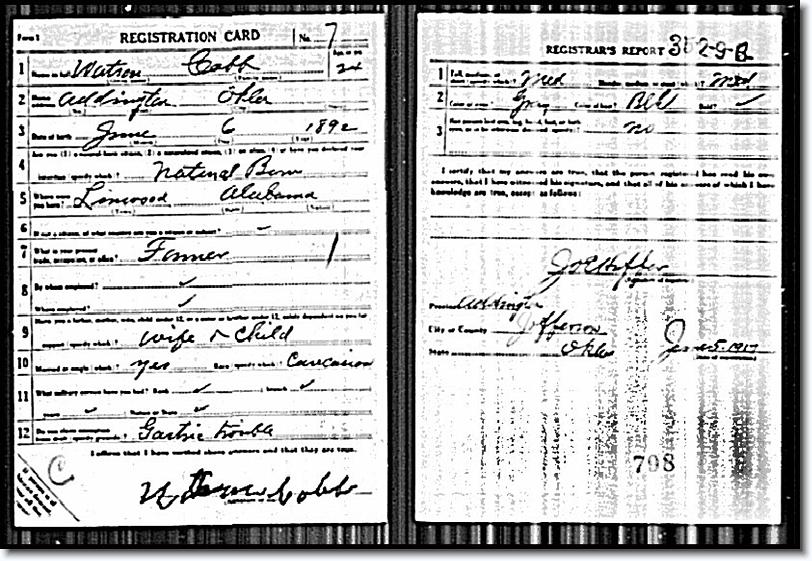 Form 1 REGISTRATION CARD No. 7
1 Name in full Watson Cobb 24
2 Home address Addington Okla
3 Date of birth June 6 1892
4 Are you (1) a natural-born citizen, (2) a naturalized citizen, (3) an alien, (4) or have you declared your
intention (specify which)? Natural Born
5 Where were you born? Linwood Alabama
6 If not a citizen, of what country are you a citizen or subject? -
7 What is your present trade, occupation, or office? Farmer 1
8 By whom employed? ✓
Where employed? ✓
9 Have you a father, mother, wife, child under 12, or a sister or brother under 12, solely dependent on you for
support (specify which)? wife & child
10 Married or single (which)? yes Race (specify which)? Caucasion
11 What military service have you had? Rank ✓ ; branch ✓
years ✓ ; Nation or State ✓
12 Do you claim exemption from draft (specify grounds)? Gastric trouble
I affirm that I have verified above answers and that they are true.
C
Watson Cobb
REGISTRAR'S REPORT 35-2-9-B
1 Tall, medium, or short (specify which)? Med Slender, medium, or stout (which)? Med
2 Color of eyes? Gray Color of hair? Blk Bald? ✓
3 Has person lost arm, leg, hand, foot, or both eyes, or is he otherwise disabled (specify)? no
I certify that my answers are true, that the person registered has read his own
answers, that I have witnessed his signature, and that all of his answers of which I have
knowledge are true, except as follows:
(Signature of registrar)
Precinct Addington
City or County Jefferson
State Okla June 5-1917
(Date of registration)
708